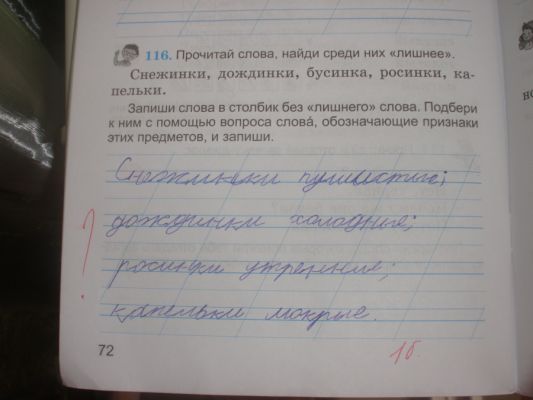 116. Прочитай слова, найди среди них «лишнее».
Снежинки, дождинки, бусинка, росинки, ка-
пельки.
Запиши слова в столбик без «лишнего» слова. Подбери
к ним с помощью вопроса словá, обозначающие признаки
этих предметов, и запиши.
Снежинки пушистые;
дождинки холодные;
?
росинки утренние;
капельки мокрые.
72
1б.
но